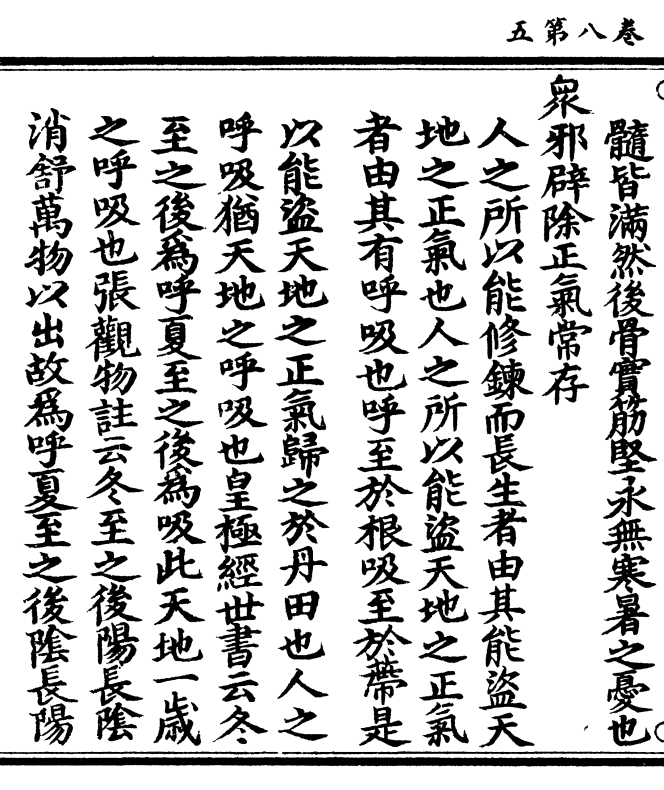 五第八卷
髓皆滿然後骨實筋堅永無寒暑之憂也
衆邪辟除正氣常存
人之所以能修鍊而長生者由其能盜天
地之正氣也人之所以能盜天地之正氣
者由其有呼吸也呼至於根吸至於蔕是
以能盜天地之正氣歸之於丹田也人之
呼吸猶天地之呼吸也皇極經世書云冬
至之後爲呼夏至之後爲吸此天地一歲
之呼吸也張觀物註云冬至之後陽長陰
消舒萬物以出故爲呼夏至之後陰長陽